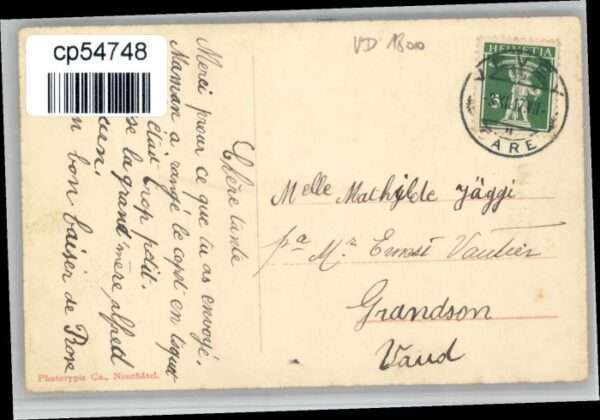 cp54748
VD 1800
HELVETIA
VEVEY
GARE
Chère tante
Merci pour ce que tu as envoyé.
Maman a rangé le
était trop petit.
la grand'mère alfred
bon baiser de Rose
Melle Mathilde Jäggi
pa Mr Ernest Vautier
Grandson
Vaud
Phototypie Co., Neuchâtel.